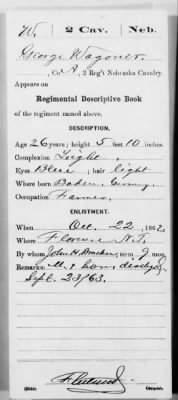 W. | 2 Cav. | Neb.
George Wagoner,
, Co. A, 2 Reg't Nebraska Cavalry.
Appears on
Regimental Descriptive Book
of the regiment named above.
DESCRIPTION.
Age 26 years; height 5 feet 10 inches.
Complexion Light
Eyes Blue ; hair light
Where born Baden, Germany
Occupation Farmer
ENLISTMENT.
When Oct. 22, 1862.
Where Florence N.T.
By whom John H. , term 9 mos
Remarks: M. & hon. dischgd
Sept. 23/63.
Copyist.